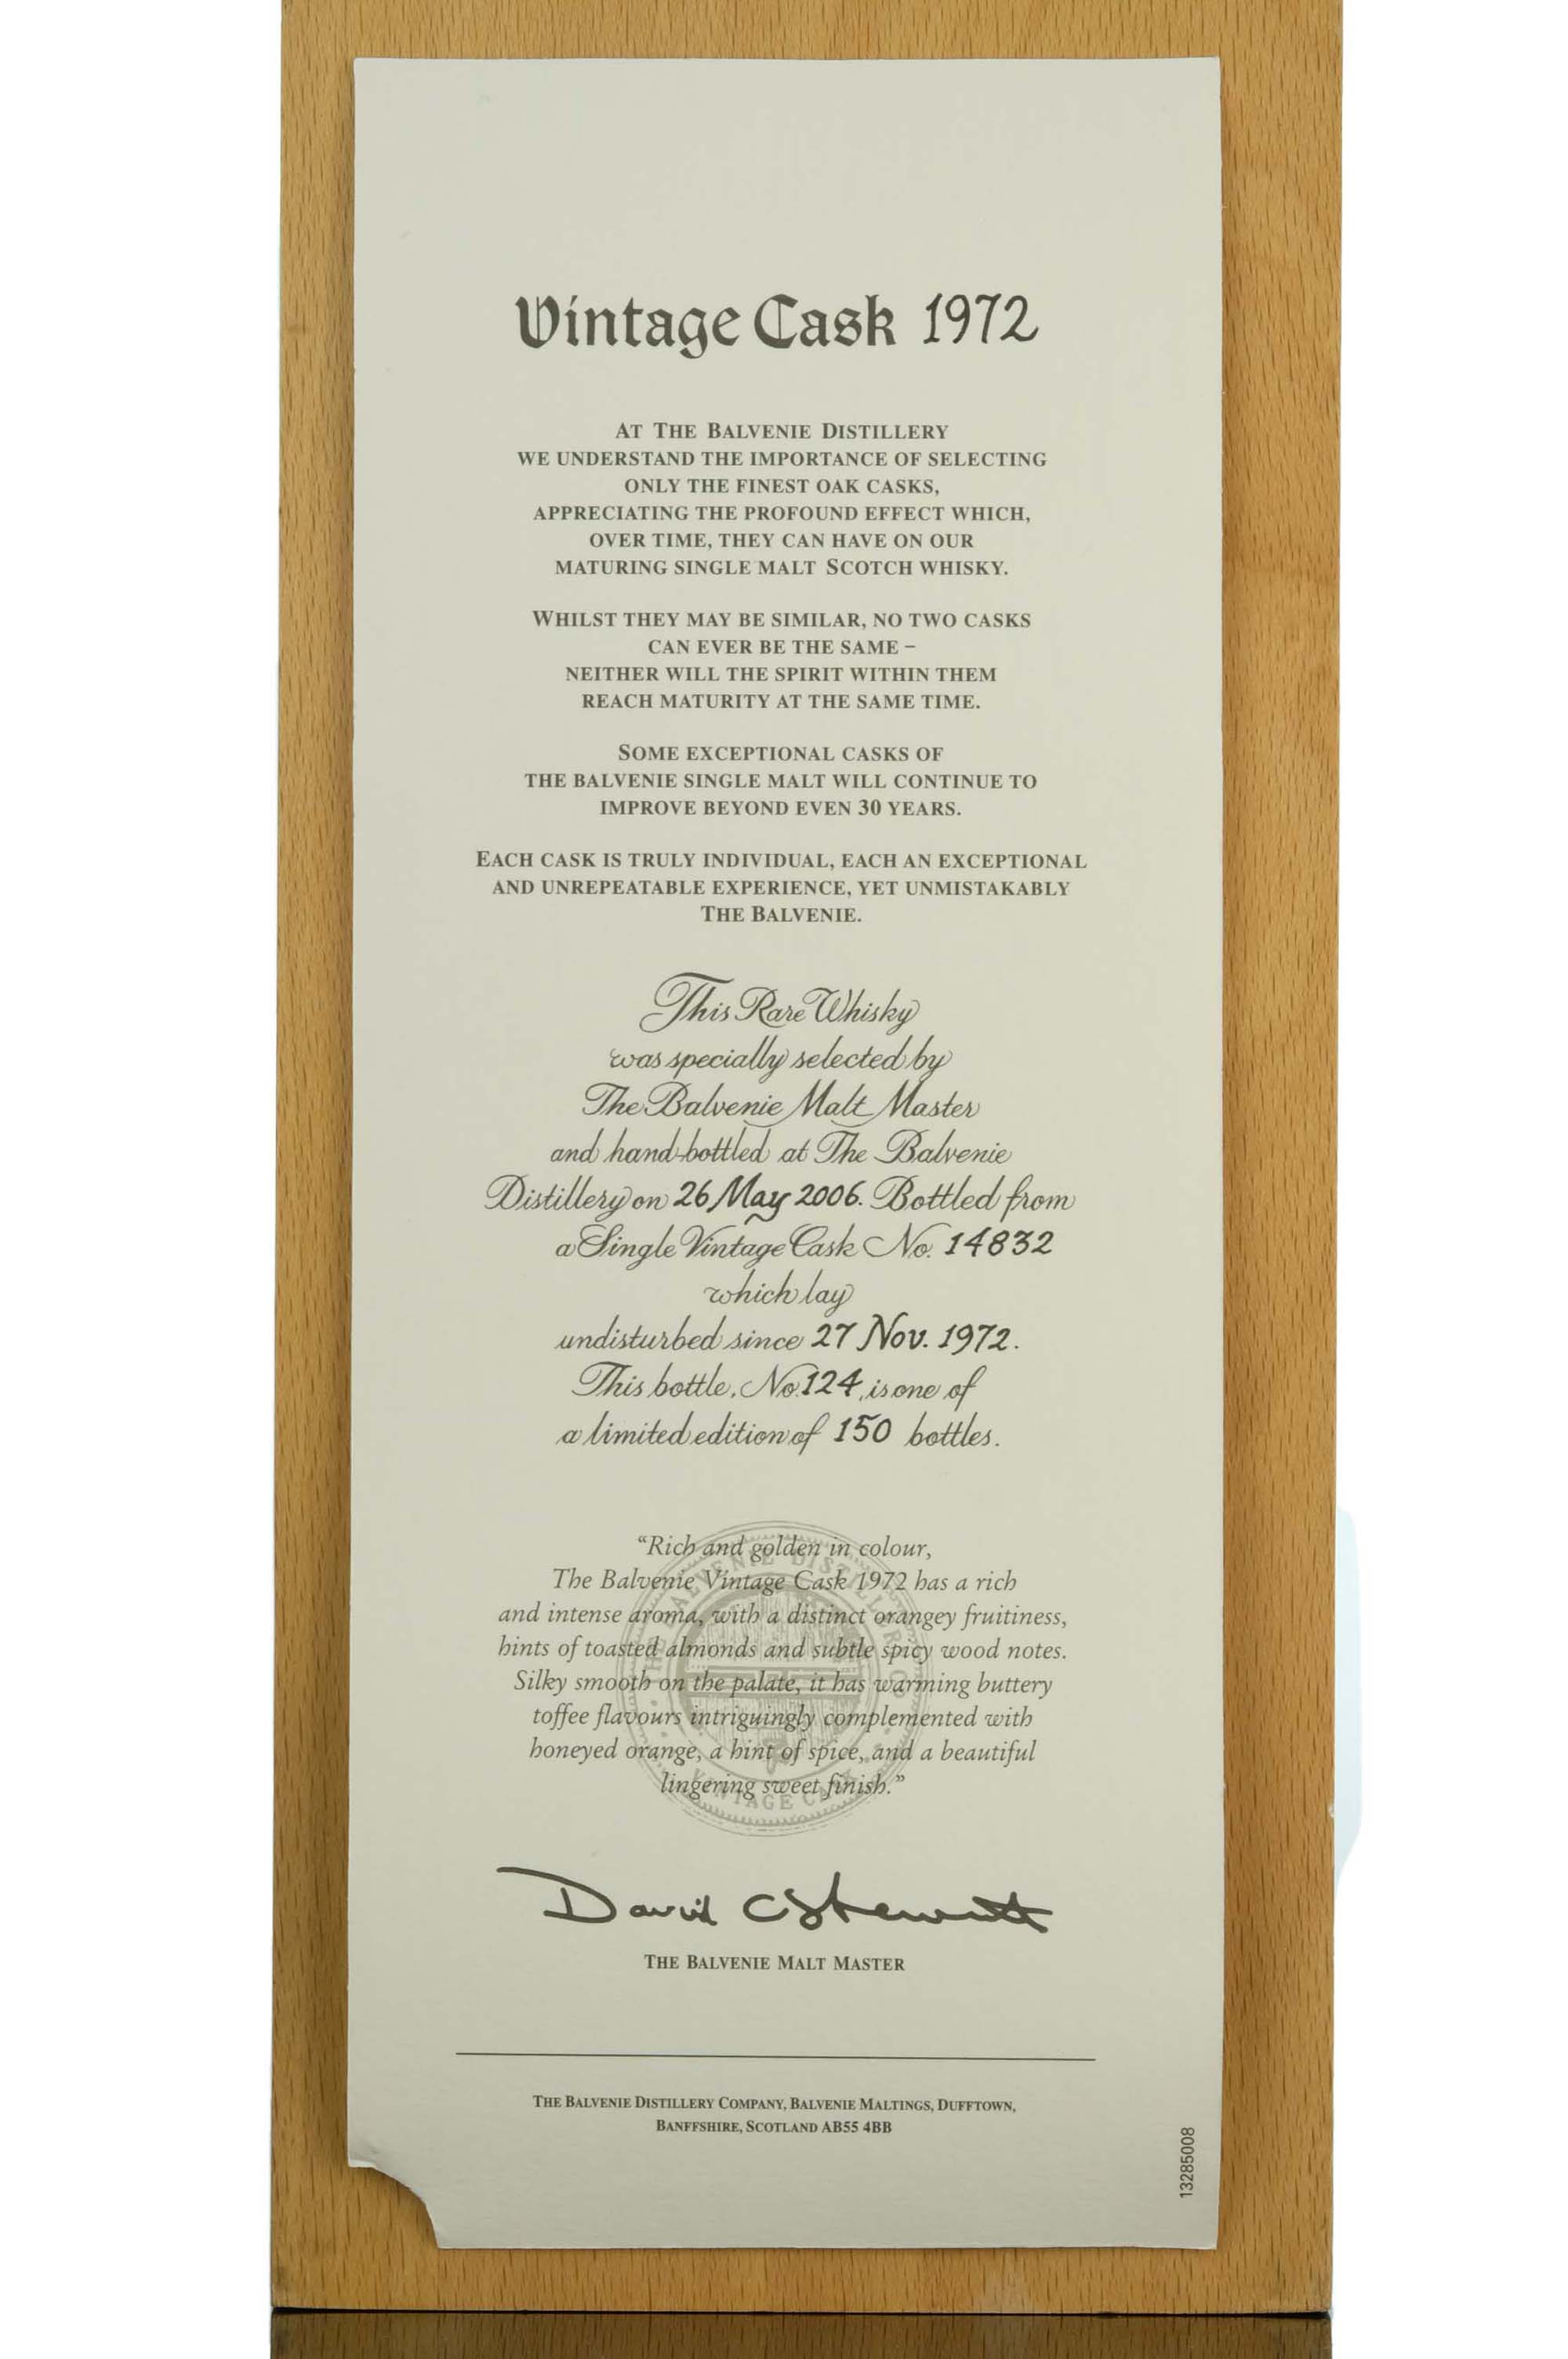 Vintage Cask 1972
AT THE BALVENIE DISTILLERY
WE UNDERSTAND THE IMPORTANCE OF SELECTING
ONLY THE FINEST OAK CASKS,
APPRECIATING THE PROFOUND EFFECT WHICH,
OVER TIME, THEY CAN HAVE ON OUR
MATURING SINGLE MALT SCOTCH WHISKY.
WHILST THEY MAY BE SIMILAR, NO TWO CASKS
CAN EVER BE THE SAME –
NEITHER WILL THE SPIRIT WITHIN THEM
REACH MATURITY AT THE SAME TIME.
SOME EXCEPTIONAL CASKS OF
THE BALVENIE SINGLE MALT WILL CONTINUE TO
IMPROVE BEYOND EVEN 30 YEARS.
EACH CASK IS TRULY INDIVIDUAL, EACH AN EXCEPTIONAL
AND UNREPEATABLE EXPERIENCE, YET UNMISTAKABLY
THE BALVENIE.
This Rare Whisky
was specially selected by
The Balvenie Malt Master
and hand-bottled at The Balvenie
Distillery on 26 May 2006. Bottled from
a Single Vintage Cask No. 14832
which lay
undisturbed since 27 Nov. 1972.
This bottle, No. 124, is one of
a limited edition of 150 bottles.
“Rich and golden in colour,
The Balvenie Vintage Cask 1972 has a rich
and intense aroma, with a distinct orangey fruitiness,
hints of toasted almonds and subtle spicy wood notes.
Silky smooth on the palate, it has warming buttery
toffee flavours intriguingly complemented with
honeyed orange, a hint of spice, and a beautiful
lingering sweet finish.”
THE BALVENIE DISTILLERY CO
VINTAGE CASK
David C Stewart
THE BALVENIE MALT MASTER
THE BALVENIE DISTILLERY COMPANY, BALVENIE MALTINGS, DUFFTOWN,
BANFFSHIRE, SCOTLAND AB55 4BB
13285008